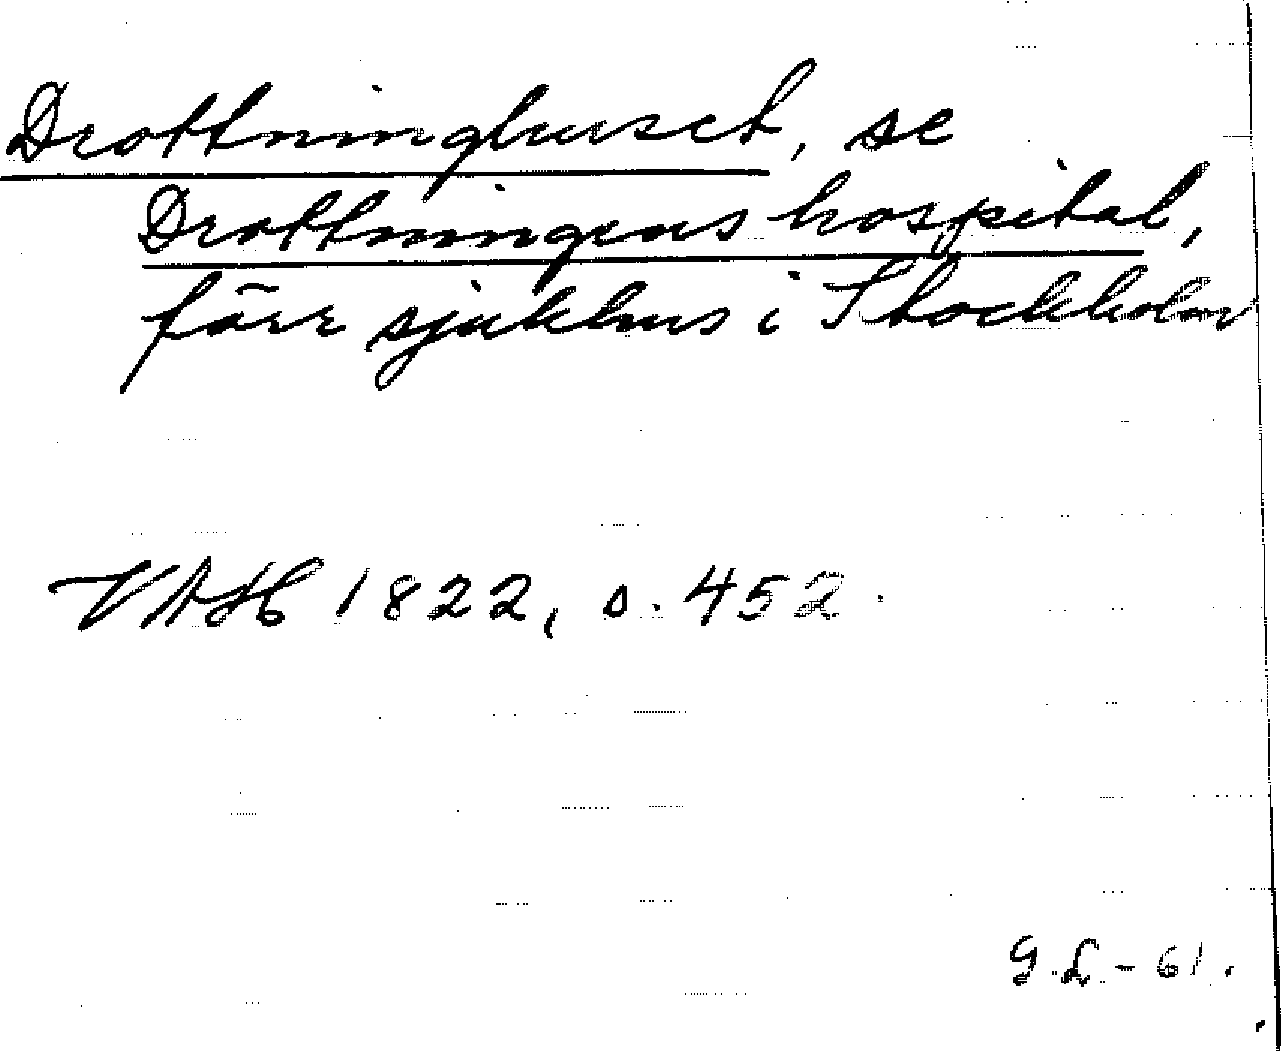 Drottninghuset, se
Drottningens hospital,
förr sjukhus i Stockholm
VAH 1822, s. 452.
G.L - 61.